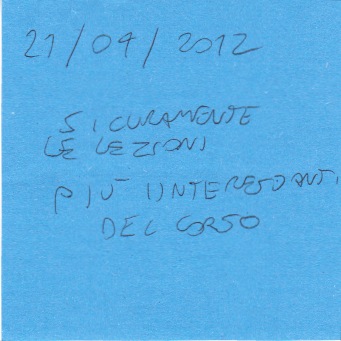 21/04/2012
SICURAMENTE
LE LEZIONI
PIÙ INTERESSANTI
DEL CORSO